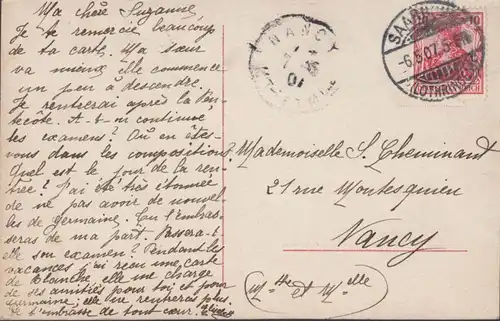 Ma chère Suzanne
Je te remercie beaucoup
de ta carte. Ma sœur
va mieux, elle commence
un peu à descendre.
Je rentrerai après la Pen-
tecôte. A-t-on continué
les examens? Où en êtes-
vous dans les compositions
Quel est le jour de la ren-
trée? J'ai été très étonnée
de ne pas avoir de nouvel-
les de Germaine. Tu l'embras-
seras de ma part. Passera-t-
elle son examen? Pendant les
vacances j'ai reçu une carte
de Blanche, elle me charge
de ses amitiés pour toi et pour
Germaine; elle ne rentrera plus.
Je t'embrasse de tout cœur.
NANCY
SAAR
-6.5.07.5
(LOTHRINGEN)
10
REICH
Mademoiselle S. Cheminant
21 rue Montesquieu
Nancy
(Mtte et Melle)